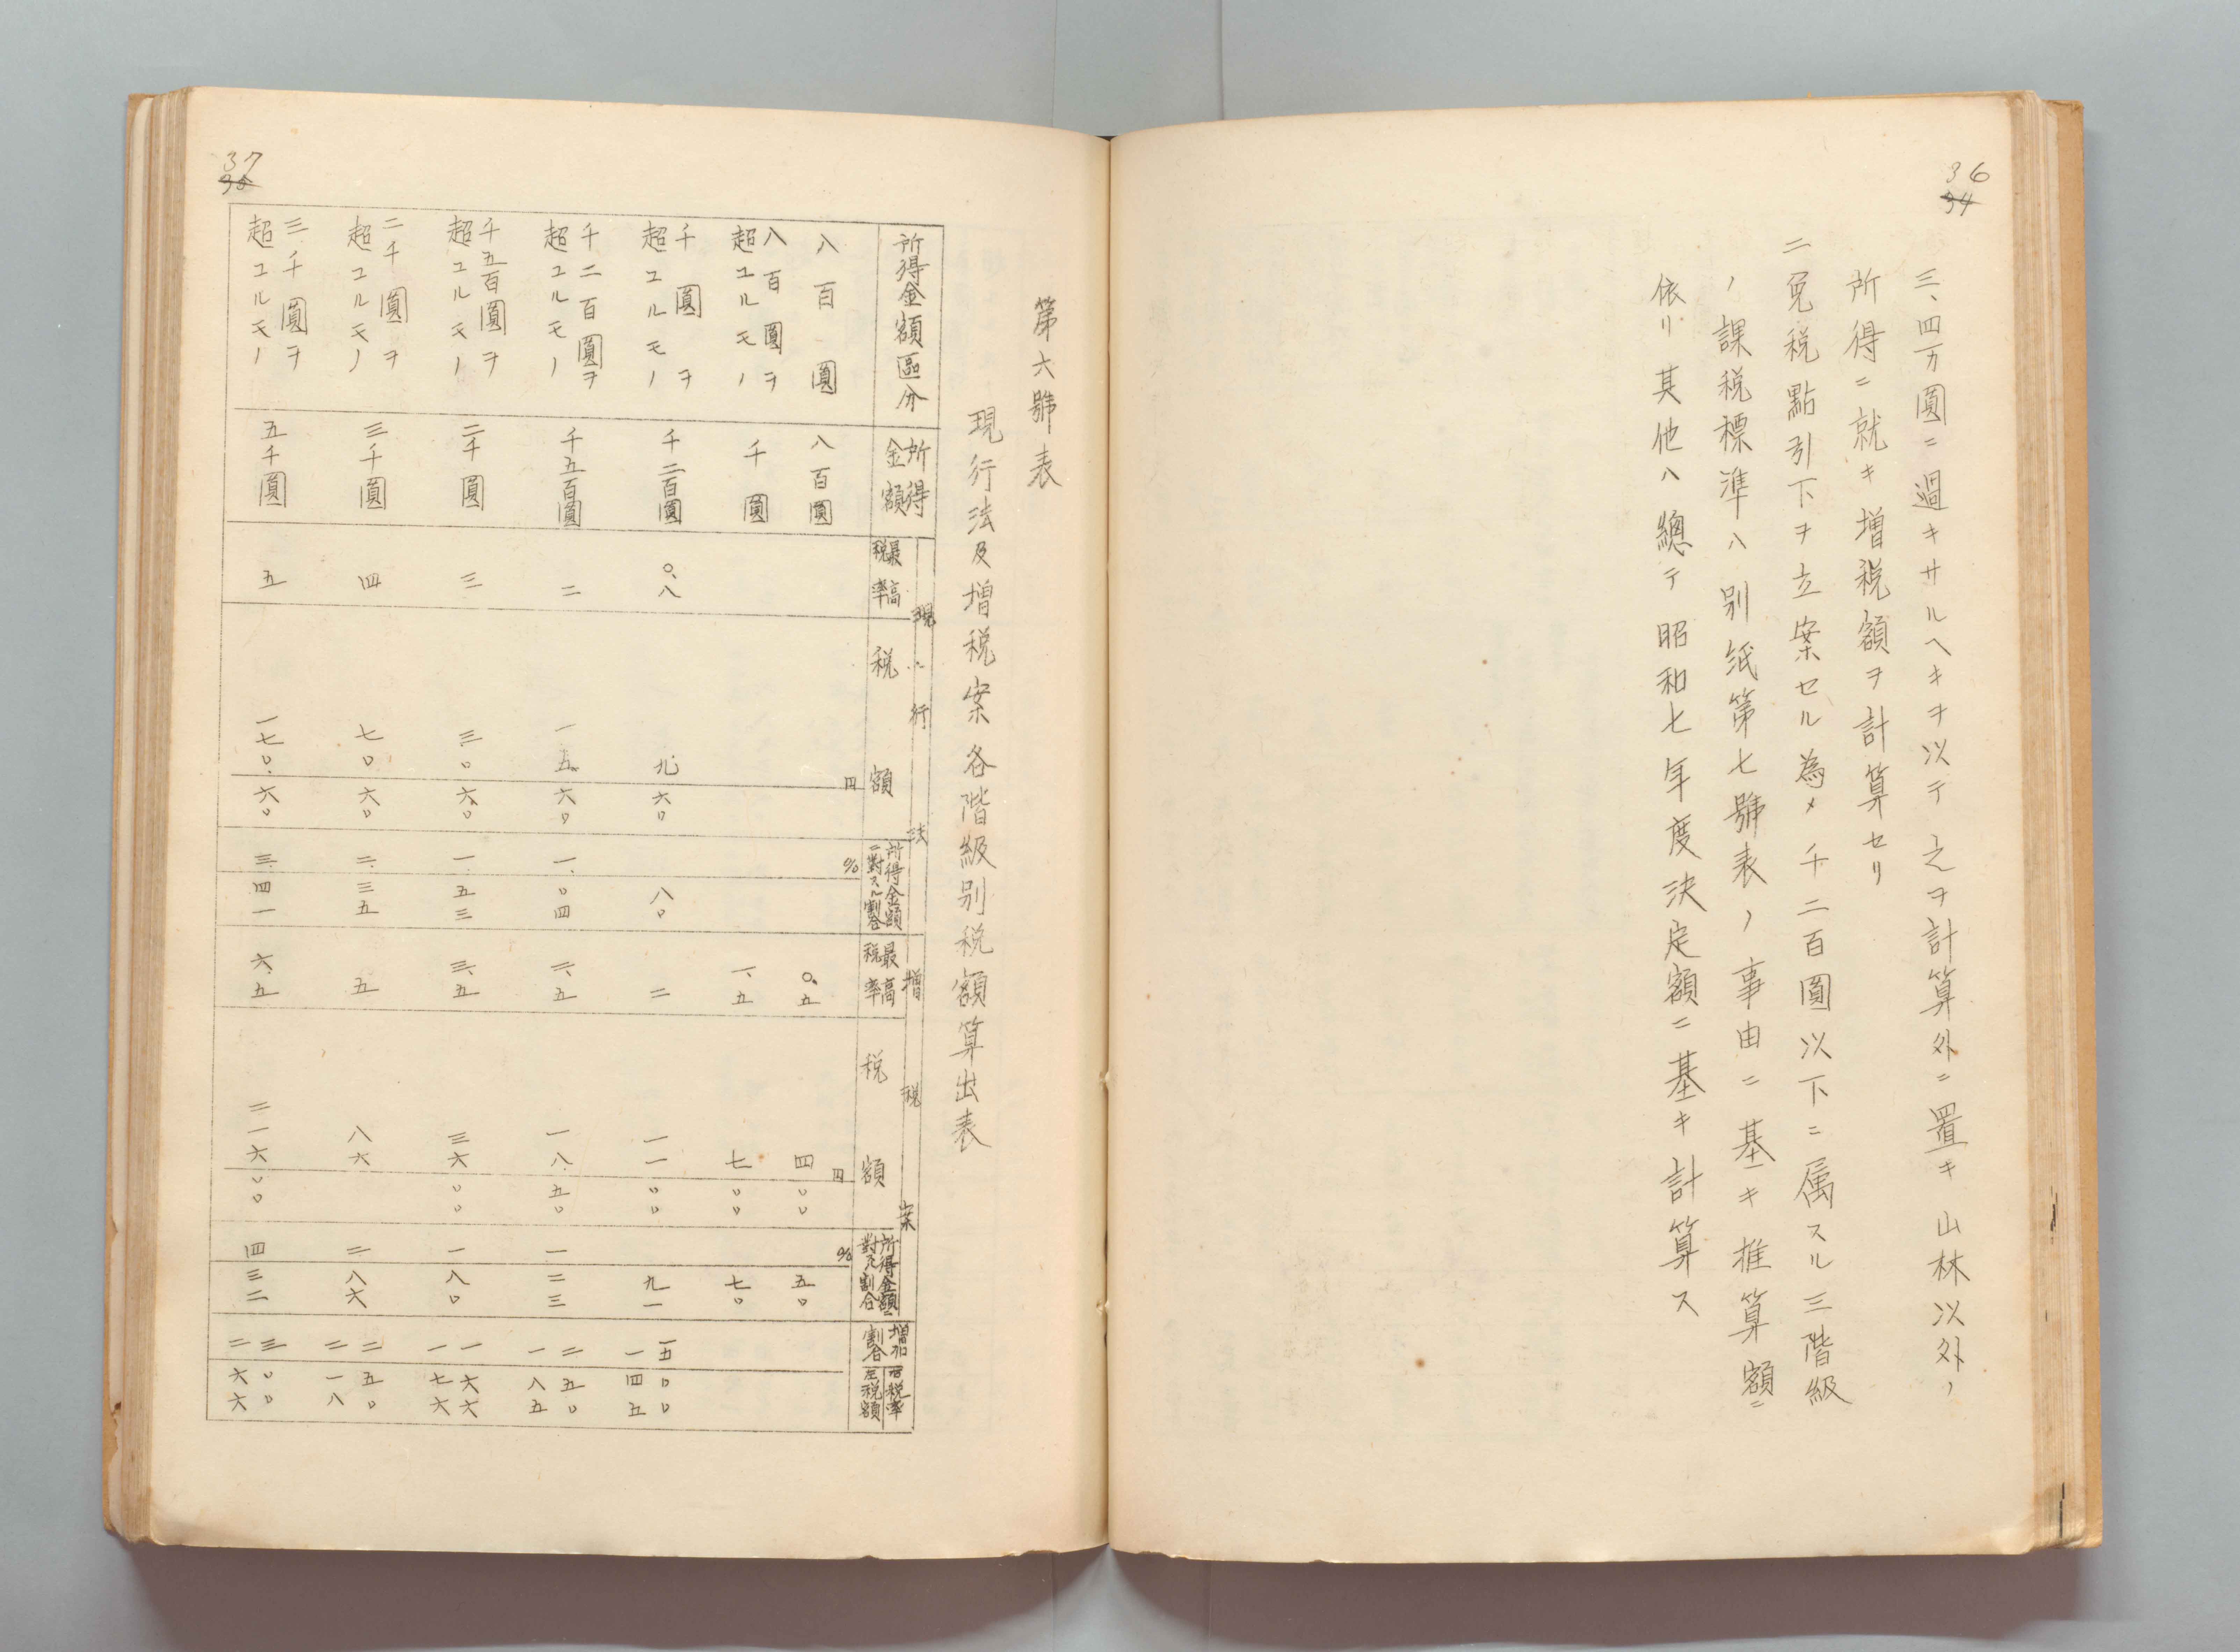 36
34
三、四万圓ニ過キサルヘキヲ以テ之ヲ計算外ニ置キ山林以外ノ
所得ニ就キ増税額ヲ計算セリ
二免税點引下ヲ立案セル為メ千二百圓以下ニ属スル三階級
ノ課税標準ハ別紙第七號表ノ事由ニ基キ推算額ニ
依リ其他ハ總テ昭和七年度決定額ニ基キ計算ス
37
第六號表
現行法及増税案各階級別税額算出表
所得金額區分
所得金額
現行法
最高税率
税額
円
所得金額ニ對スル割合
%
増税案
最高税率
税額
円
所得金額ニ對スル割合
%
増加割合
右税率
左税額
八百圓
八百圓
〇.五
四 〇〇
五〇
八百圓ヲ超ユルモノ
千圓
一.五
七 〇〇
七〇
千圓ヲ超ユルモノ
千二百圓
〇.八
九.六〇
八〇
二
一一 〇〇
九一
一五〇〇
一四五
千二百圓ヲ超ユルモノ
千五百圓
二
一五.六〇
一.〇四
二.五
一八.五〇
一 二三
二五〇
一八五
千五百圓ヲ超ユルモノ
二千圓
三
三〇.六〇
一.五三
三.五
三六 〇〇
一 八〇
一六六
一七六
二千圓ヲ超ユルモノ
三千圓
四
七〇 六〇
二.三五
五
八六
二 八六
二五〇
二一八
三千圓ヲ超ユルモノ
五千圓
五
一七〇.六〇
三.四一
六.五
二一六 〇〇
四 三二
三〇〇
二六六